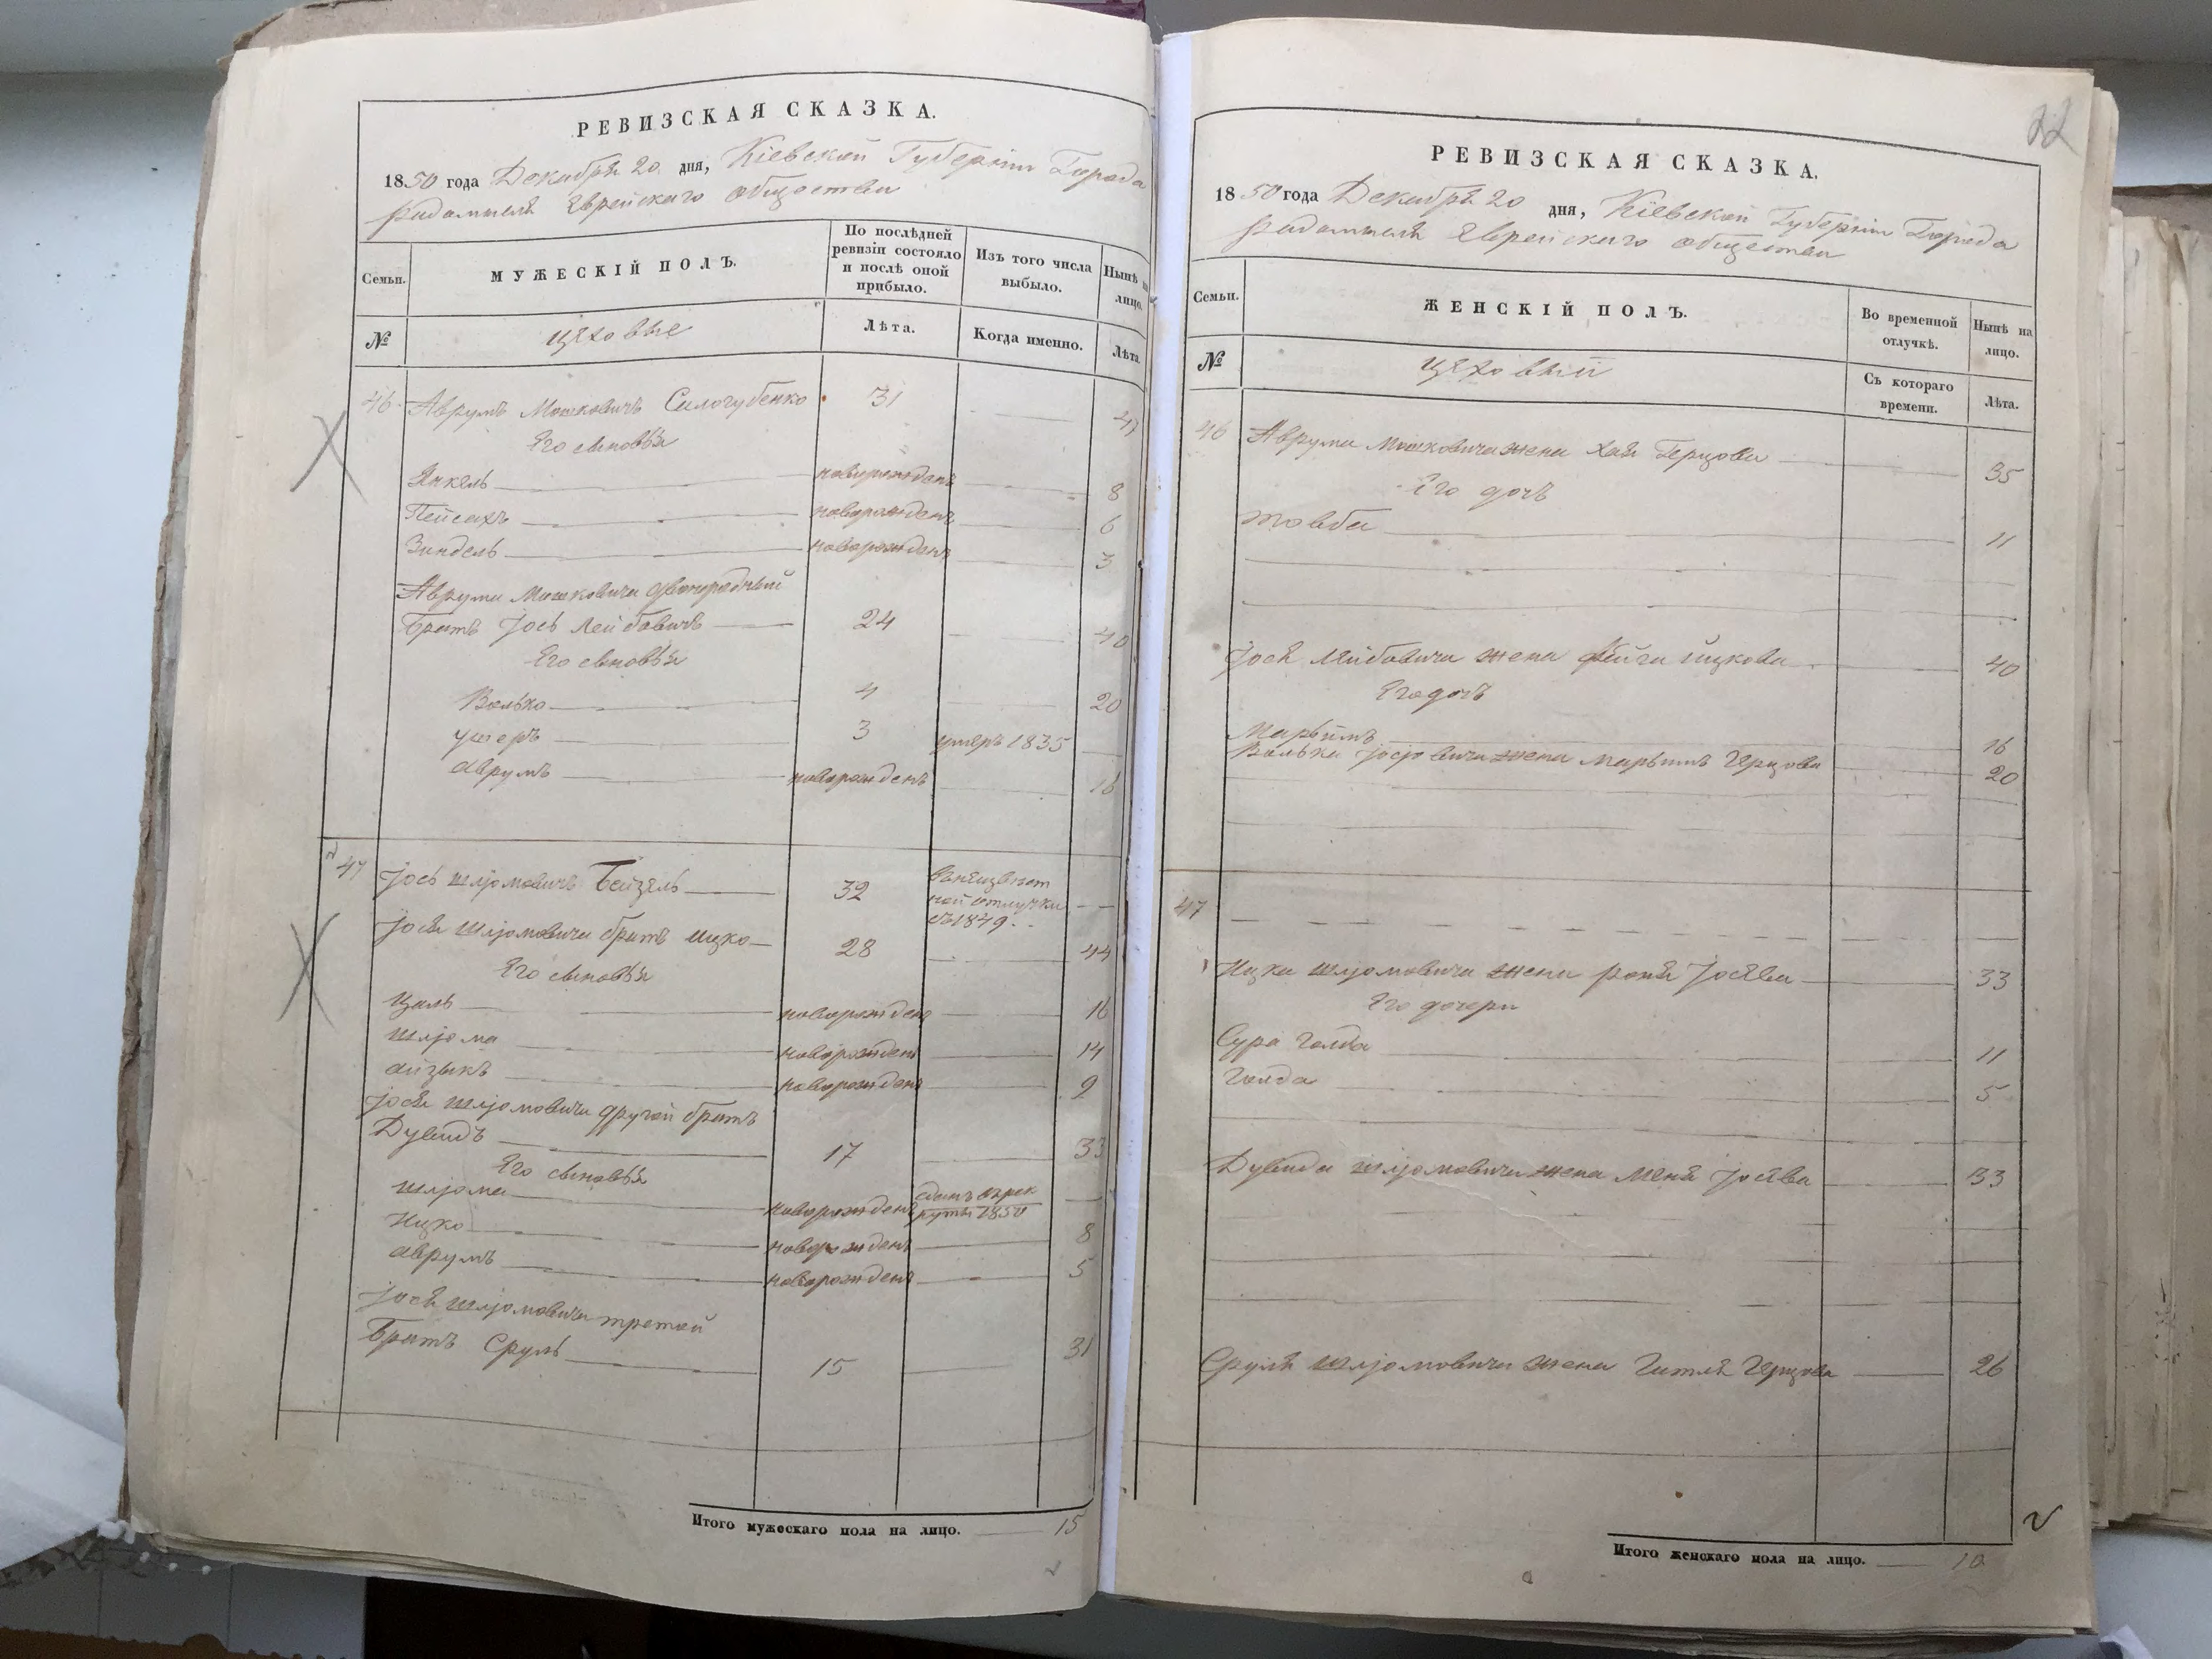 РЕВИЗСКАЯ СКАЗКА.
1850 года Декабря 20 дня, Кіевской Губерніи Города
Радомысля Еврейскаго общества
Семьи.
МУЖЕСКІЙ ПОЛЪ.
По послѣдней
ревизіи состояло
и послѣ оной
прибыло.
Изъ того числа
выбыло.
Нынѣ на
лицо.
№
цеховые
Лѣта.
Когда именно.
Лѣта.
46 Аврумъ Мошковичъ 31 47
Его сыновья
Янкель новорожденъ 8
Пейсахъ новорожденъ 6
Зиндель новорожденъ 3
Аврума Мошковича двоюродный
Братъ Іось Лейбовичъ 24 40
Его сыновья
Волько 4 20
Ушеръ 3 умеръ 1835
Аврумъ новорожденъ 16
47 Іось Шліомовичъ Бейзель 32 въ неизвѣст
ной отлучки
съ 1849.
Іося Шліомовича братъ Ицко 28 44
Его сыновья
Цаль новорожденъ 16
Шліома новорожденъ 14
Айзыкъ новорожденъ 9
Іося Шліомовича другой братъ
Дувидъ 17 33
Его сыновья
Шліома новорожденъ сданъ въ рек
руты 1850
Ицко новорожденъ 8
Аврумъ новорожденъ 5
Іося Шліомовича третей
Братъ Сруль 15 31
Итого мужескаго пола на лицо. 15
22
РЕВИЗСКАЯ СКАЗКА.
1850 года Декабря 20 дня, Кіевской Губерніи Города
Радомысля Еврейскаго общества
Семьи.
ЖЕНСКІЙ ПОЛЪ.
Во временной
отлучкѣ.
Нынѣ на
лицо.
№
цеховый
Съ котораго
времени.
Лѣта.
46 Аврума Мошковича жена Хая Герцова 35
Его дочь
Товба 11
Іося Лейбовича жена Фейга Ицкова 40
Его дочь
Марьямъ 16
Волька Іосіовича жена Марьямъ Герцова 20
47
Ицка Шліомовича жена Роня Іосева 33
Его дочери
Сура Голда 11
Голда 5
Дувида Шліомовича жена Меня Іосева 33
Сруля Шліомовича жена Гитля Герцова 26
Итого женскаго пола на лицо. 10